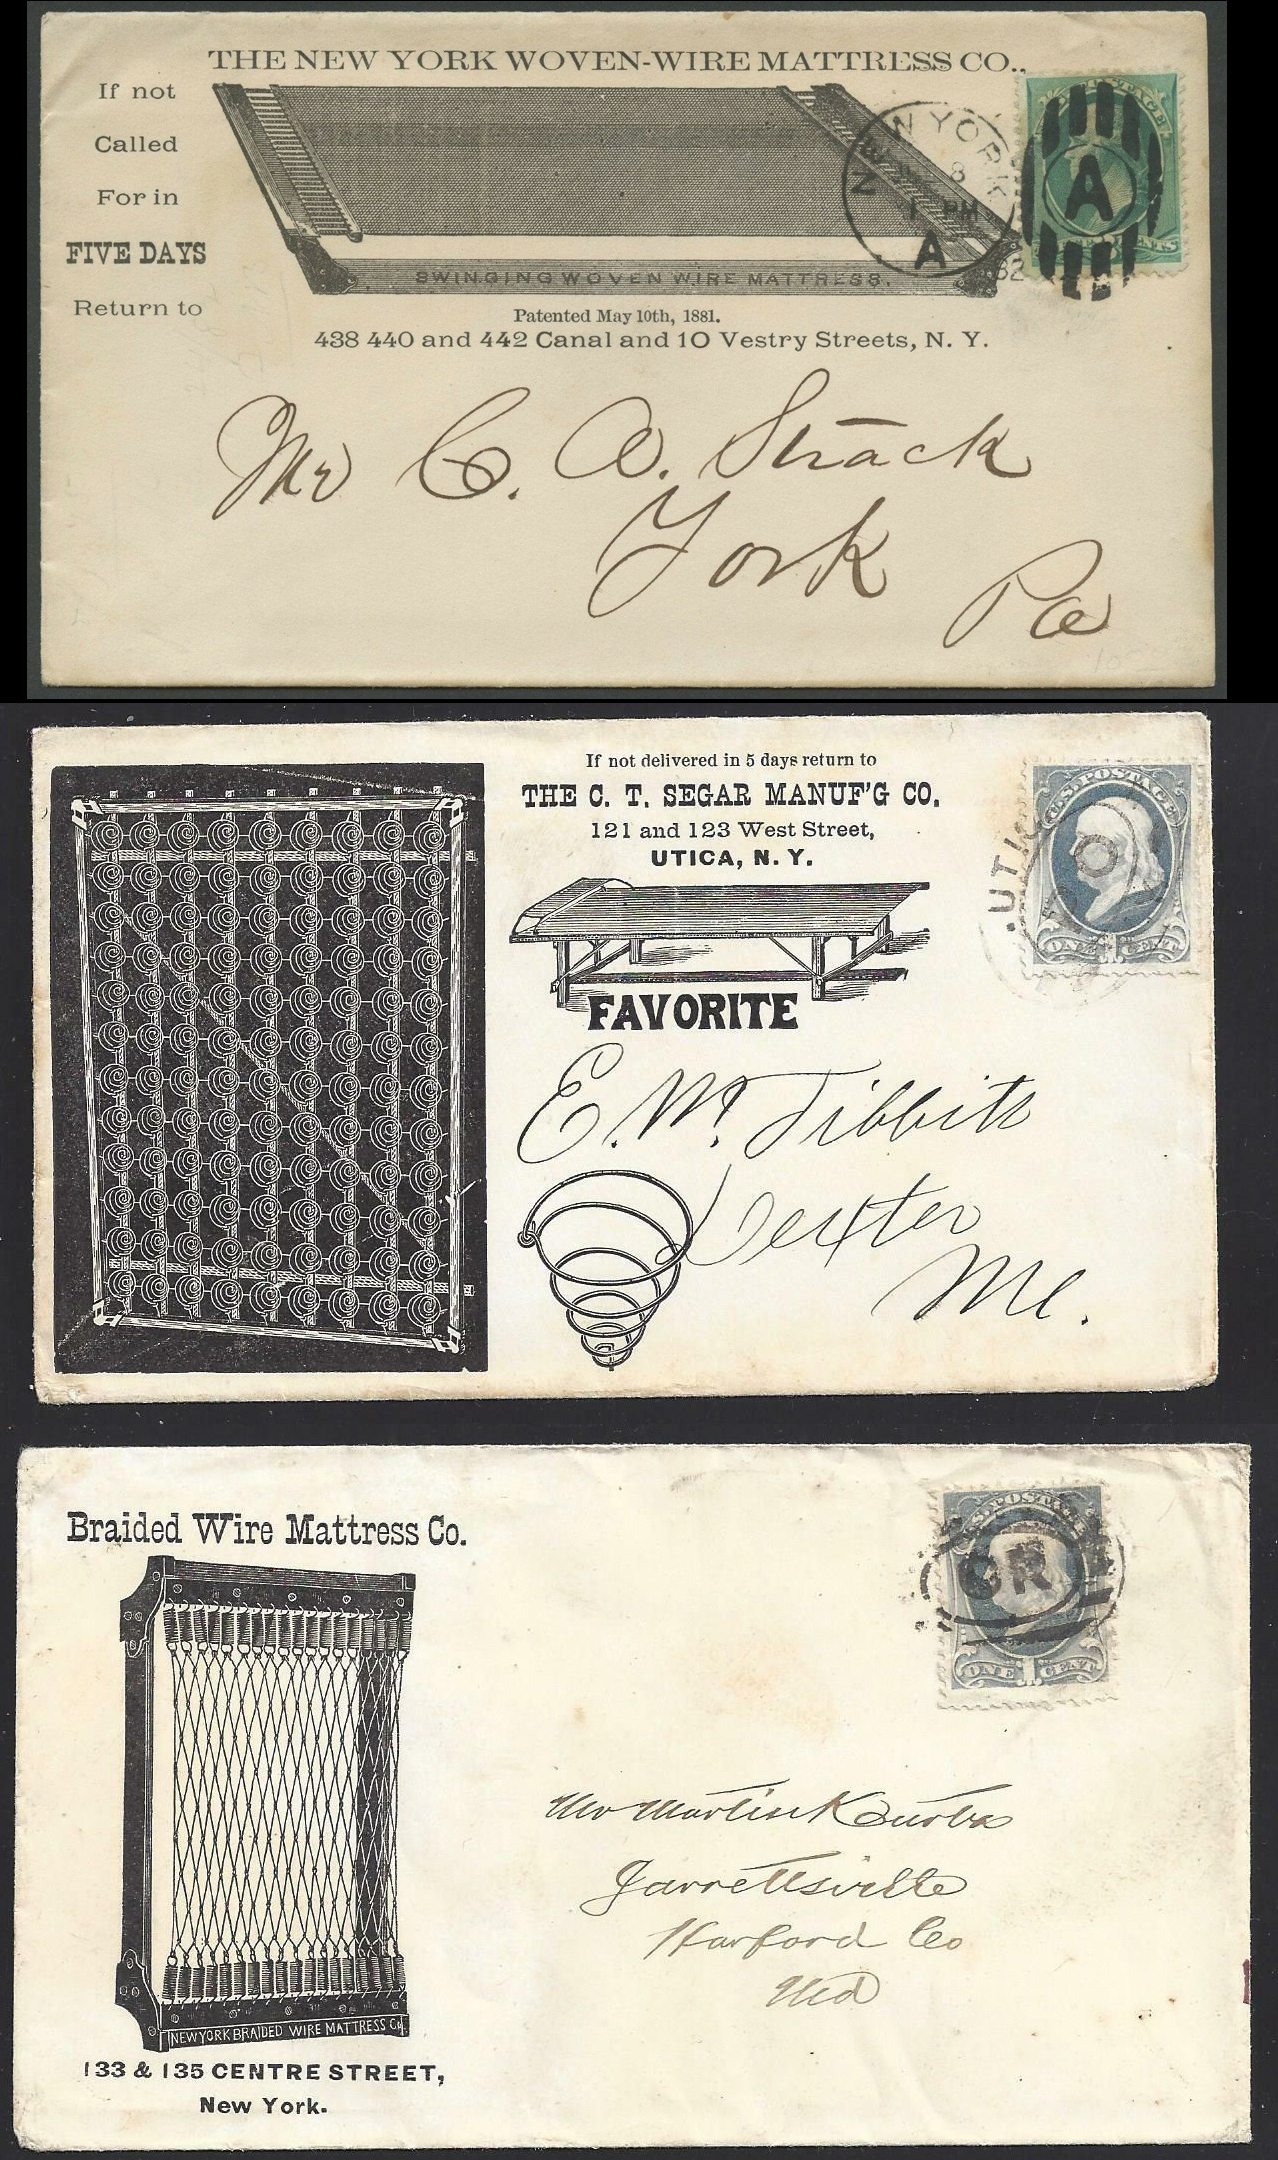 THE NEW YORK WOVEN-WIRE MATTRESS CO.,
If not
Called
For in
FIVE DAYS
Return to
SWINGING WOVEN WIRE MATTRESS.
Patented May 10th, 1881.
438 440 and 442 Canal and 10 Vestry Streets, N. Y.
NEW YORK
8
1 PM
A
82
A
Mr C. A. Strack
York
Pa
If not delivered in 5 days return to
THE C. T. SEGAR MANUF'G CO.
121 and 123 West Street,
UTICA, N. Y.
FAVORITE
U.S. POSTAGE
ONE 1 CENT
UTICA
E. M. Tibbits
Dexter
Me.
Braided Wire Mattress Co.
NEW YORK BRAIDED WIRE MATTRESS Co.
133 & 135 CENTRE STREET,
New York.
U.S. POSTAGE
OR
ONE 1 CENT
Mr Martin Kurtz
Jarrettsville
Harford Co
Md